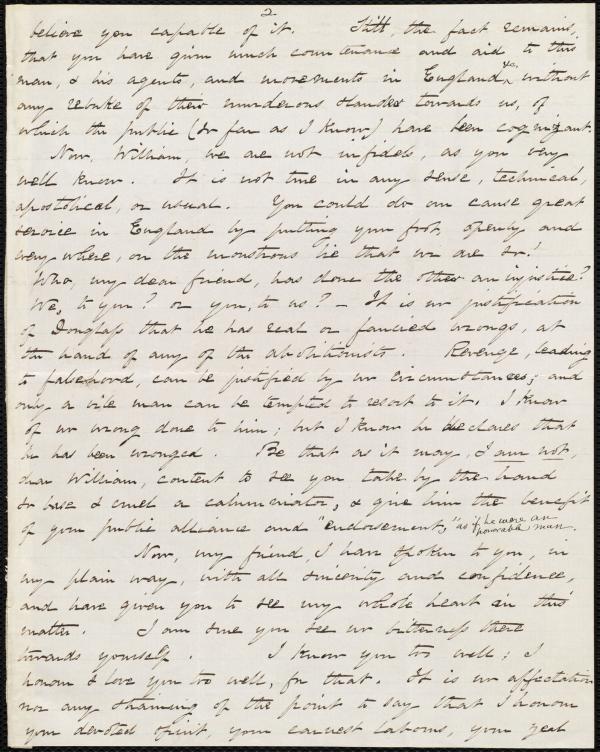 2
believe you capable of it. Still, the fact remains,
that you have given much countenance and aid to this
man, & his agents, and movements in England, &c, without
any rebuke of their murderous slander towards us, of
which the public (so far as I know) have been cognizant.
Now, William, we are not infidels, as you very
well know. It is not true in any sense, technical,
apostolical, or usual. You could do our cause great
service in England by putting your foot, openly and
every where, on the monstrous lie that we are so!
Who, my dear friend, has done the other an injustice?
We, to you? or you, to us? – It is no justification
of Douglass that he has real or fancied wrongs, at
the hand of any of the abolitionists. Revenge, leading
to falsehood, can be justified by no circumstances; and
only a vile man can be tempted to resort to it. I know
of no wrong done to him; but I know he declares that
he has been wronged. Be that as it may, I am not,
dear William, content to see you take by the hand
so base & cruel a calumniator, & give him the benefit
of your public alliance and "endorsement," as if he were an
honorable man.
Now, my friend, I have spoken to you, in
my plain way, with all sincerity and confidence,
and have given you to see my whole heart in this
matter. I am sure you see no bitterness there
towards yourself. I know you too well; I
honour & love you too well, for that. It is no affectation
nor any straining of the point to say that I honour
your devoted spirit, your earnest labors, your zeal